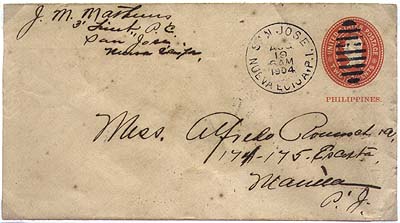 J. M. Mathews
3" Lieut, P. C.
San Jose,
Nueva Ecija
SAN JOSE
AUG
19
AM
1904
NUEVA ECIJA, P.I.
UNITED STATES POSTAGE
PHILIPPINES.
Mess. Alfredo
174-175 Escolta,
Manila
P. I.